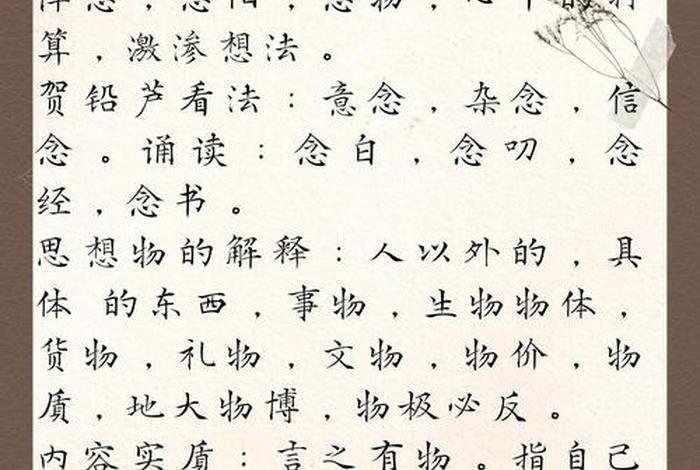 算，激渗想法。
贺铅芦看法：意念，杂念，信
念。诵读：念白，念叨，念
经，念书。
思想物的解释：人以外的，具
体 的东西，事物，生物物体，
货物，礼物，文物，物价，物
质，地大物博，物极必反。
内容实质：言之有物。指自己